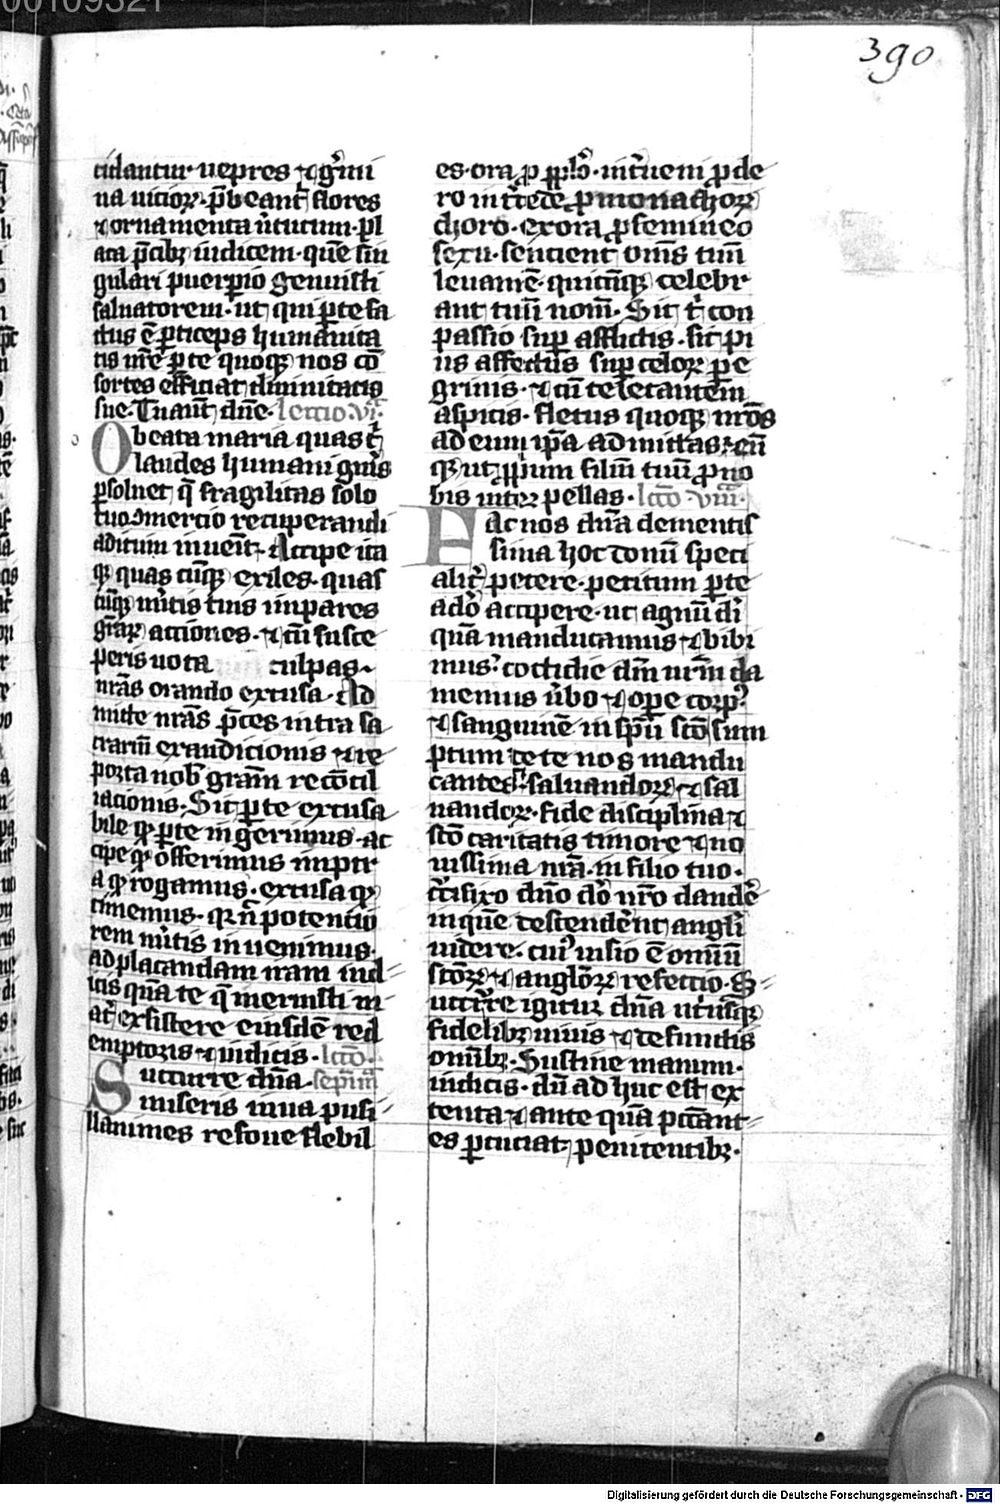 390
cidantur· uepres ⁊ gͥmi
na uicioꝝ· p̄beant᷑ flores
⁊ ornamenta uͥtutum· pl
aca p̄cibꝫ iudicem· quē sin
gulari puerꝑio genuisti
saluatorem· ut qui ꝑ te fa
ctus ē ꝑticeps humanita
tis nr̄e ꝑ te quoqꝫ nos cō
sortes efficiat diuinitatis
sue· Tu aut̄ dn̄e· lectio·vi·
O beata maria quas t᷑
laudes humani gn̄is
ꝑsoluet᷑ q̄ fragilitas solo
tuo ꝯmercio recuperandi
aditum inuenit᷑· Accipe ita
qꝫ quas cūqꝫ exiles· quas
cūqꝫ mͥtis tuis impares
gr̄aꝝ acciones· ⁊ cū susce
peris uota culpas
nr̄as orando excusa· Ad
mitte nr̄as p̄ces intra sa
crariū exaudicionis ⁊ re
porta nob̄ gr̄am reconcil
iacionis· Sit ꝑ te excusa
bile qꝫ ꝑ te ingerimus· ac
cipe qꝫ offerimus impet᷑
a qꝫ rogamus· excusa qꝫ
timemus· qꝛ n̄ potencio
rem mͥtis inuenimus·
ad placandam iram iud
icis qua̅ te q̄ meruisti m
at᷑ exsistere eiusdē red
emptoris ⁊ iudicis· lcc̄o·
Succurre dn̄a· septīa
miseris iuua pusi
llanimes refoue flebil
es· ora ꝓ pp̄lo· int᷑ueni ꝓ cle
ro int᷑cede ꝓ monachoꝝ
choro· exora ꝓ femineo
sexu· sencient om̄s tuū
leuamē· quicūqꝫ celebr
ant tuū nom̄· Sit t᷑ con
passio suꝑ afflictis· sit pi
us affectus suꝑ celoꝝ pe
grinis· ⁊ cū te letantem
aspicis· fletus quoqꝫ nr̄os
ad eum ip̄a admittas· eū
qꝫ ut ꝓpium filiū tuū ꝓ no
bis int᷑pellas· lcc̄o viii·
Fac nos dn̄a clementis
sima hoc donū speci
alit᷑ petere· petitum ꝑ te
a do̅ accipere· ut agnū di̅
quē manducamus ⁊ bibi
mus· cottidie dn̄m nr̄m da
menius ūbo ⁊ ope corꝑ
⁊ sanguinē in sp̄u scō sum
ptum de te nos mandu
cantes· saluandoꝝ ⁊ sal
uandoꝝ· fide disciplina ⁊
scō caritatis timore ⁊ no
uissima nr̄a· in filio tuo·
cͥcifixo dn̄o do̅ nr̄o dandē
in quē descendēnt angli
uidere· cuiꝰ uisio ē omniū
scōꝝ ⁊ angl̄oꝝ refectio· S
uccurre igitur dn̄a ut᷑usqꝫ
fidelibꝫ uiuis ⁊ defunctis
om̄ibꝫ· Sustine manum·
iudicis· dū ad huc est ex
tenta ⁊ ante qua̅ pcc̄ant
es ꝑcuciat penitentibꝫ·
Digitalisierung gefördert durch die Deutsche Forschungsgemeinschaft - DFG